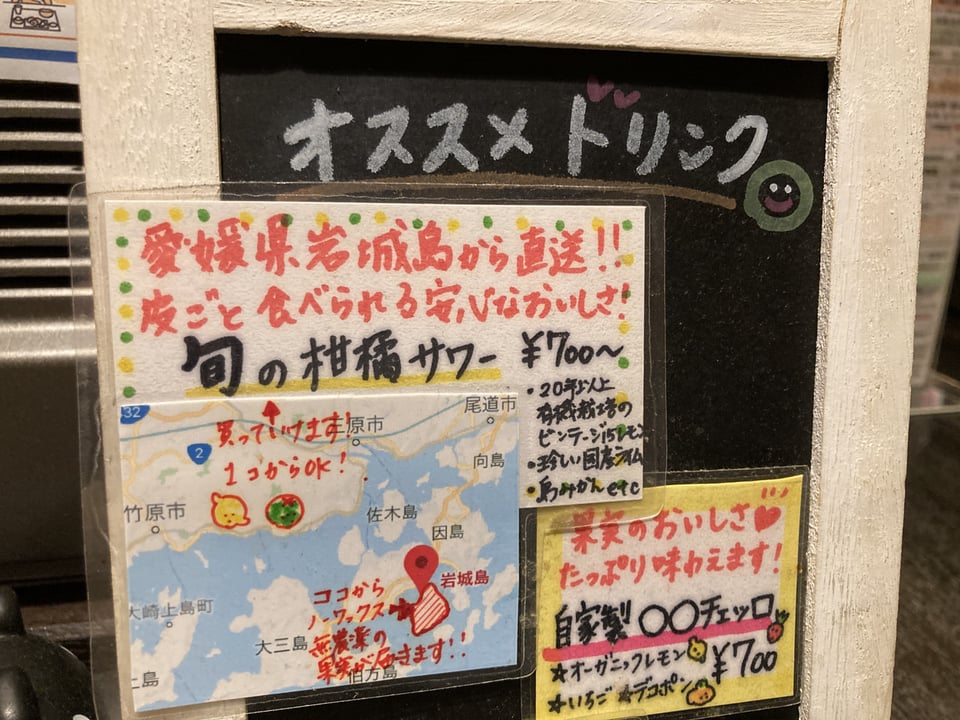 オススメドリンク
愛媛県岩城島から直送!!
皮ごと食べられる安心なおいしさ!
旬の柑橘サワー
¥700〜
・20年以上
有機栽培の
ビンテージレモン
・珍しい国産ライム
・島みかんetc
32
尾道市
買っていけます!
三原市
2
1コからOK!
向島
竹原市
佐木島
因島
岩城島
ココから
ノーワックス
無農薬の
果実が届きます!!
大崎上島町
大三島
伯方島
上島
果実のおいしさ
たっぷり味わえます!
自家製〇〇チェッロ
¥700
★オーガニックレモン
★いちご ★デコポン